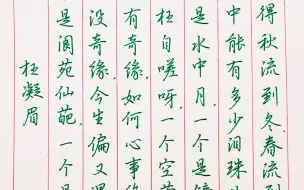 枉凝眉
是阆苑仙葩,一个是
没奇缘,今生偏又遇
有奇缘,如何心事终
枉自嗟呀,一个空劳
是水中月,一个是镜
中能有多少泪珠
得秋流到冬,春流到